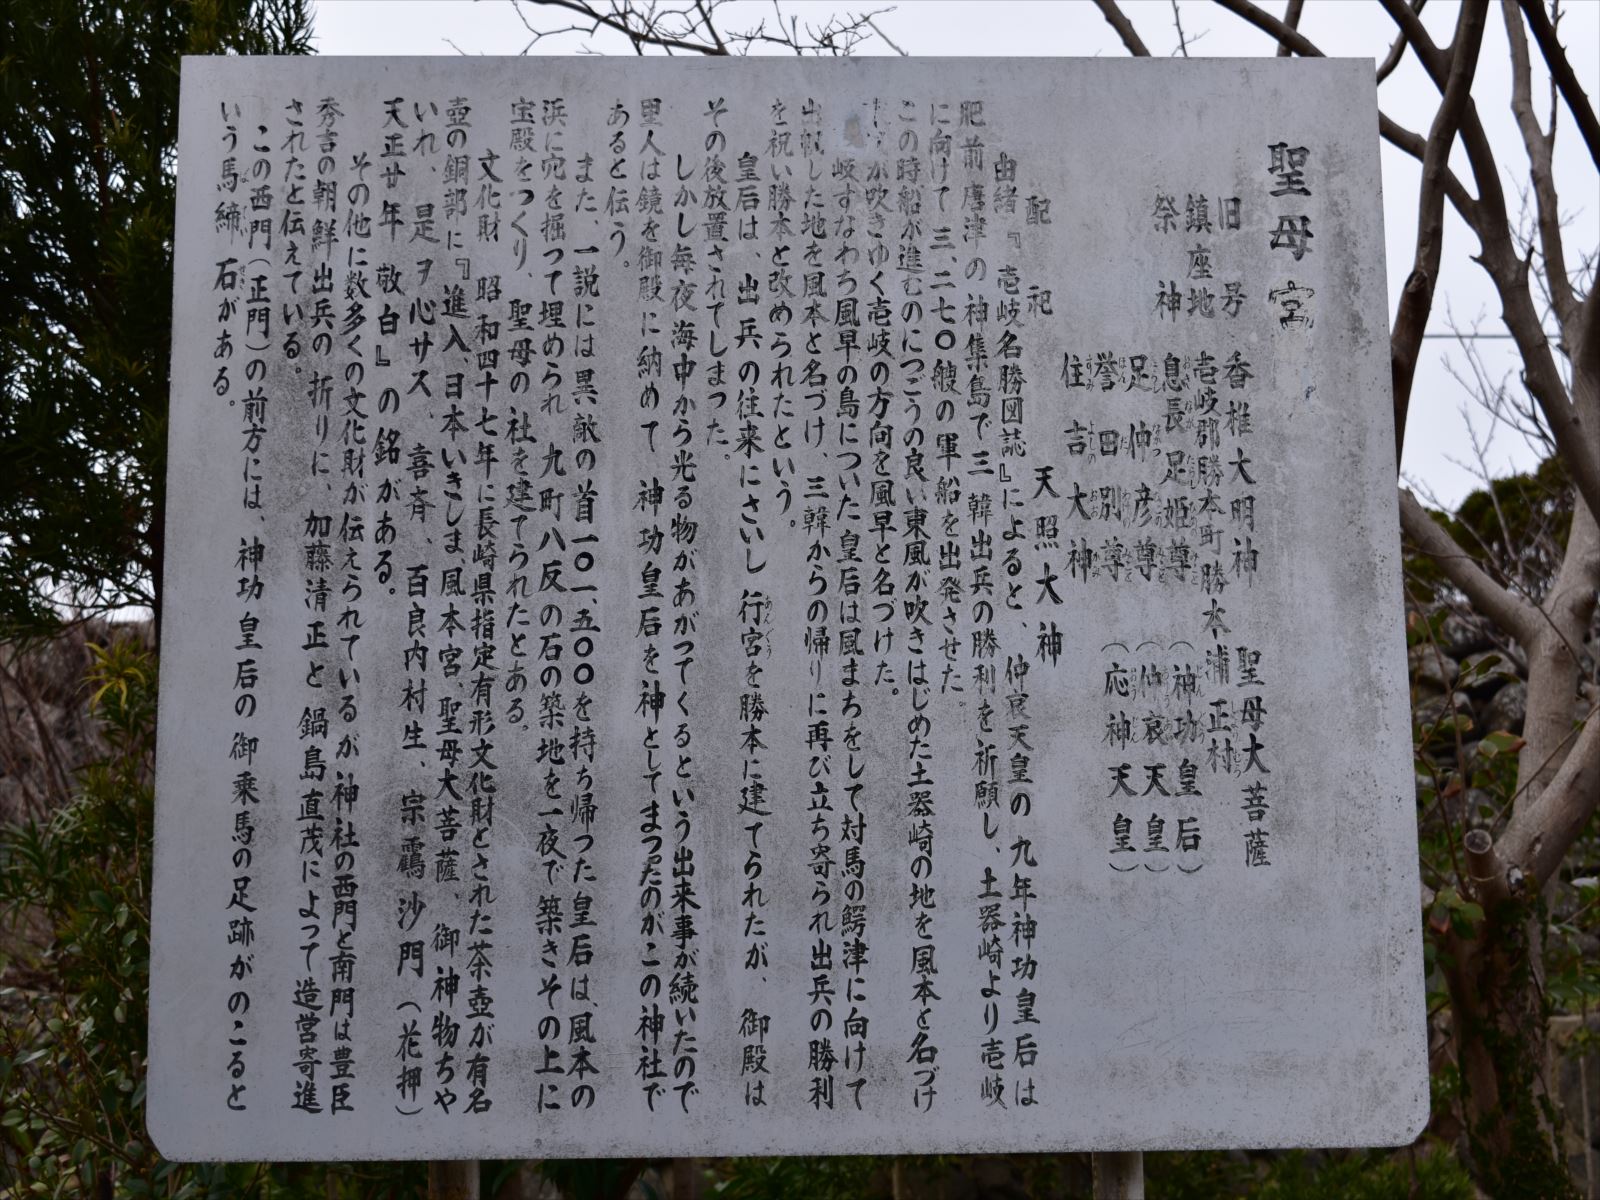 聖母宮
旧号 香椎大明神 聖母大菩薩
鎮座地 壱岐郡勝本町勝本浦正村
祭神 息長足姫尊（神功皇后）
足仲彦尊（仲哀天皇）
誉田別尊（応神天皇）
住吉大神
配祀 天照大神
由緒『壱岐名勝図誌』によると、仲哀天皇の九年神功皇后は
肥前唐津の神集島で三韓出兵の勝利を祈願し、土器崎より壱岐
に向けて三、二七〇艘の軍船を出発させた。
この時船が進むのにつごうの良い東風が吹きはじめた土器崎の地を風本と名づけ
が吹きゆく壱岐の方向を風早と名づけた。
岐すなわち風早の島についた皇后は風まちをして対馬の鰐津に向けて
出帆した地を風本と名づけ、三韓からの帰りに再び立ち寄られ出兵の勝利
を祝い勝本と改められたという。
皇后は、出兵の往来にさいし行宮を勝本に建てられたが、御殿は
その後放置されてしまった。
しかし毎夜海中から光る物があがってくるという出来事が続いたので
里人は鏡を御殿に納めて 神功皇后を神としてまつったのがこの神社で
あると伝う。
また、一説には異敵の首一〇一、五〇〇を持ち帰った皇后は、風本の
浜に穴を掘って埋められ 九町八反の石の築地を一夜で築きその上に
宝殿をつくり、聖母の社を建てられたとある。
文化財 昭和四十七年に長崎県指定有形文化財とされた茶壺が有名
壺の銅部に『進入、日本いきしま風本宮、聖母大菩薩、御神物ちや
いれ、是ヲ心サス、喜斉、百良内村生、宗 沙門（花押）
天正廿年 敬白』の銘がある。
その他に数多くの文化財が伝えられているが神社の西門と南門は豊臣
秀吉の朝鮮出兵の折りに、加藤清正と鍋島直茂によって造営寄進
されたと伝えている。
この西門（正門）の前方には、神功皇后の御乗馬の足跡がのこると
いう馬締石がある。